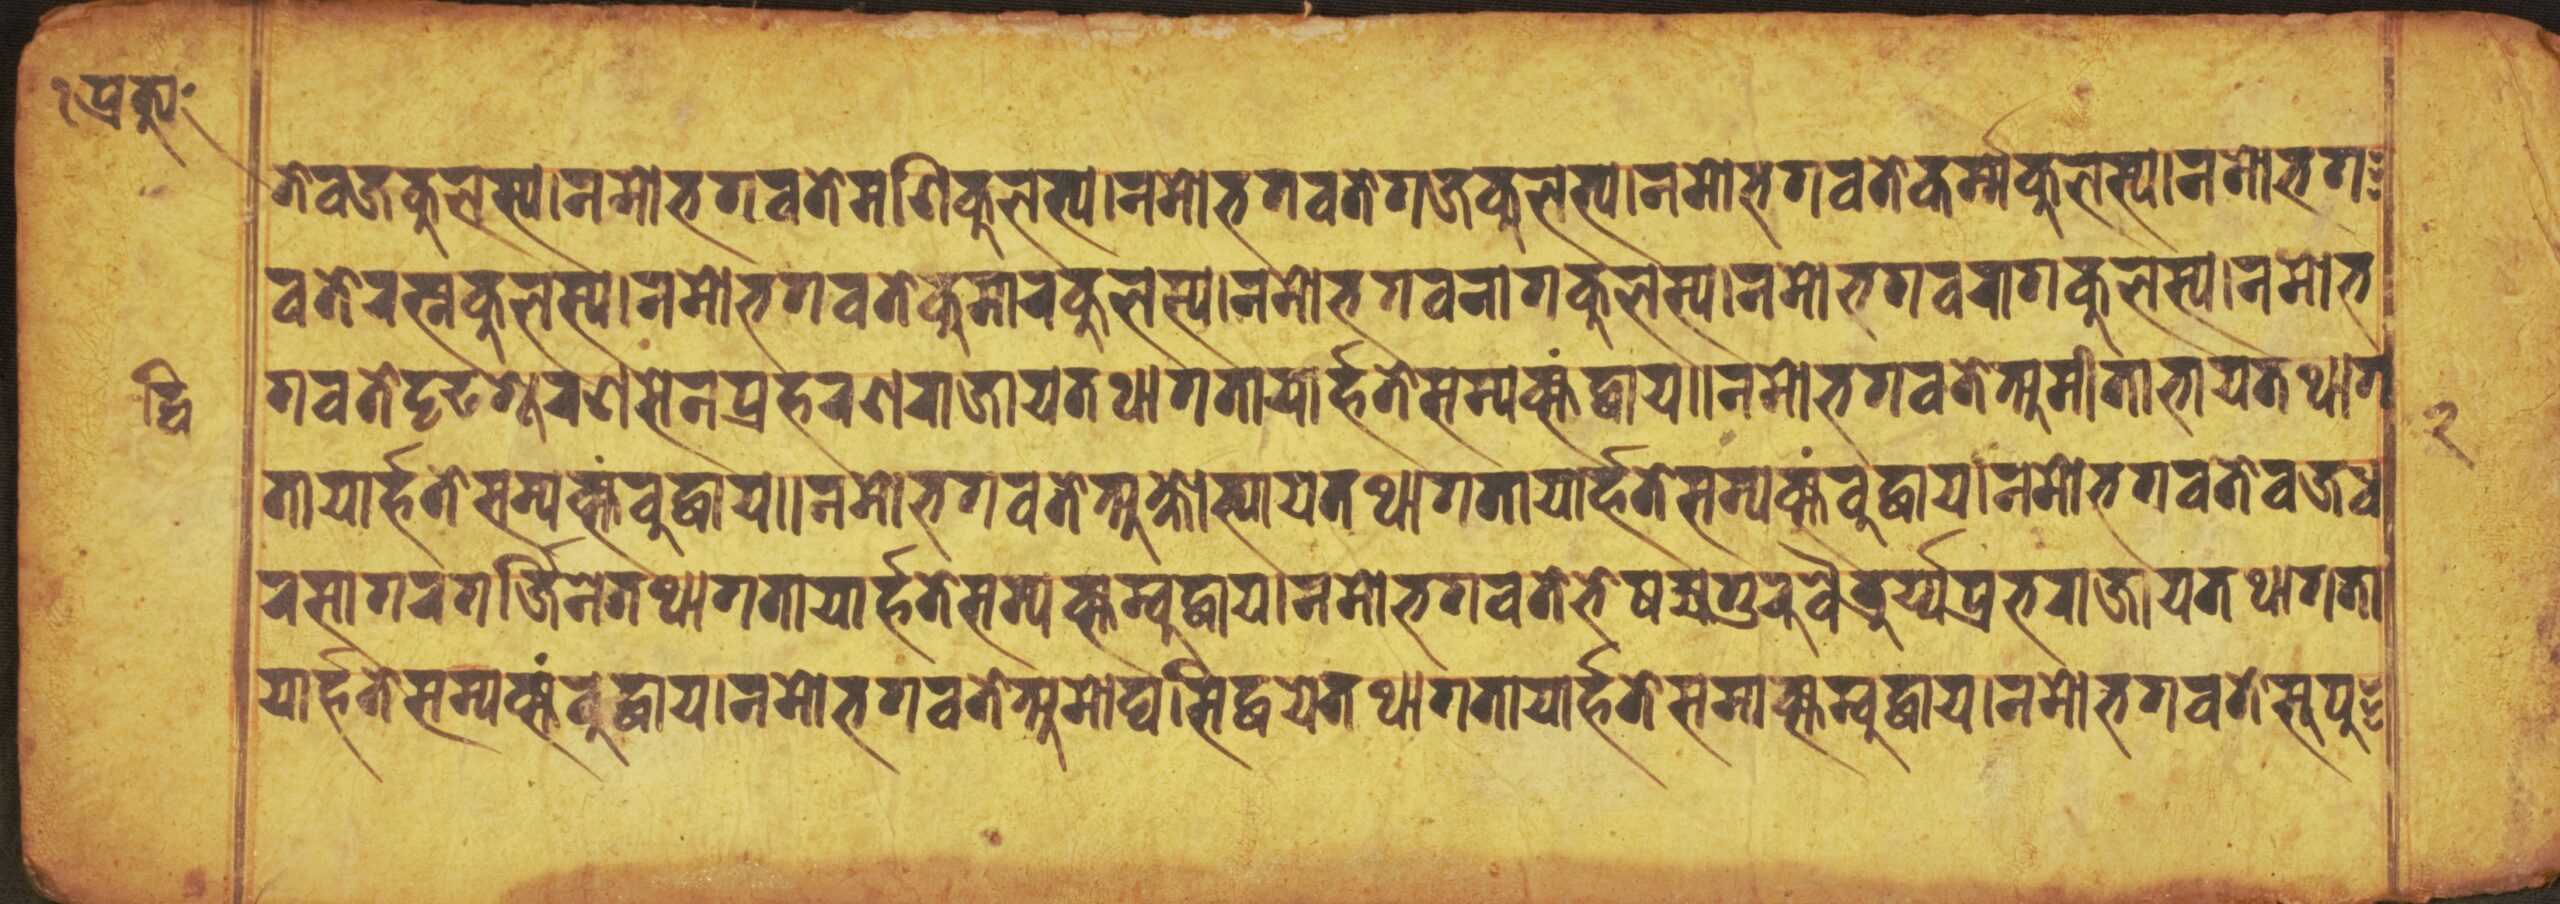 प्रत्यु
तेवज्रकुलस्य।नमोभगवतेमणिकुलस्य।नमोभगवतेगजकुलस्य।नमोभगवतेकर्म्मकुलस्य।नमोभग
वतेरत्नकुलस्य।नमोभगवतेकुमारकुलस्य।नमोभगवनागकुलस्य।नमोभगवरागकुलस्य।नमोभ
गवतेदृढशूरणसेनप्रहरणराजायतथागतायार्हतेसम्यक्संद्धाय॥नमोभगवतेअमीताभायतथाग
द्वि
२
तायार्हतेसम्यक्संबुद्धाय॥नमोभगवतेअक्षोभ्यायतथागतायार्हतेसम्यक्संबुद्धाय।नमोभगवतेवज्रध
रसागरगर्ज्जिनेतथागतायार्हतेसम्यक्सम्बुद्धाय।नमोभगवतेभेषज्यगुरुवैदुर्य्यप्रभराजायतथागता
यार्हतेसम्यक्संबुद्धाय।नमोभगवतेअमोघसिद्धयेतथागतायार्हतेसमाक्सम्बुद्धाय।नमोभगवतेसुपु